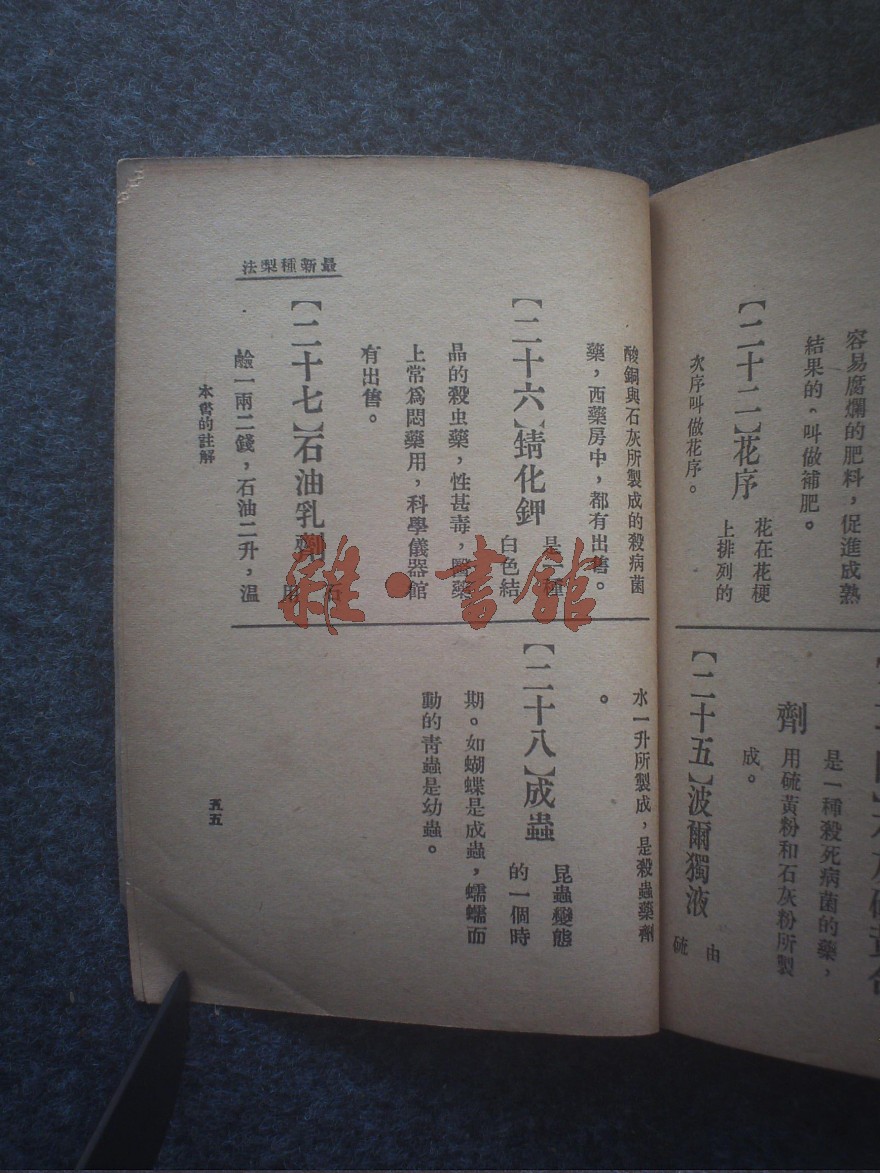 容易腐爛的肥料，促進成熟
結果的。叫做補肥。
【二十二】花序
花在花梗
上排列的
次序叫做花序。
是一種殺死病菌的藥，
用硫黃粉和石灰粉所製
劑
成。
【二十五】波爾獨液
由
硫
最新種梨法
酸銅與石灰所製成的殺病菌
藥，西藥房中，都有出售。
【二十六】錆化鉀
是一種
白色結
晶的殺虫藥，性甚毒，醫藥
上常爲悶藥用，科學儀器館
有出售。
【二十七】石油乳劑
石
用
鹼一兩二錢，石油二升，温
水一升所製成，是殺蟲藥劑
。
【二十八】成蟲
昆蟲變態
的一個時
期。如蝴蝶是成蟲，蠕蠕而
動的青蟲是幼蟲。
本書的註解
五五
雜·書館